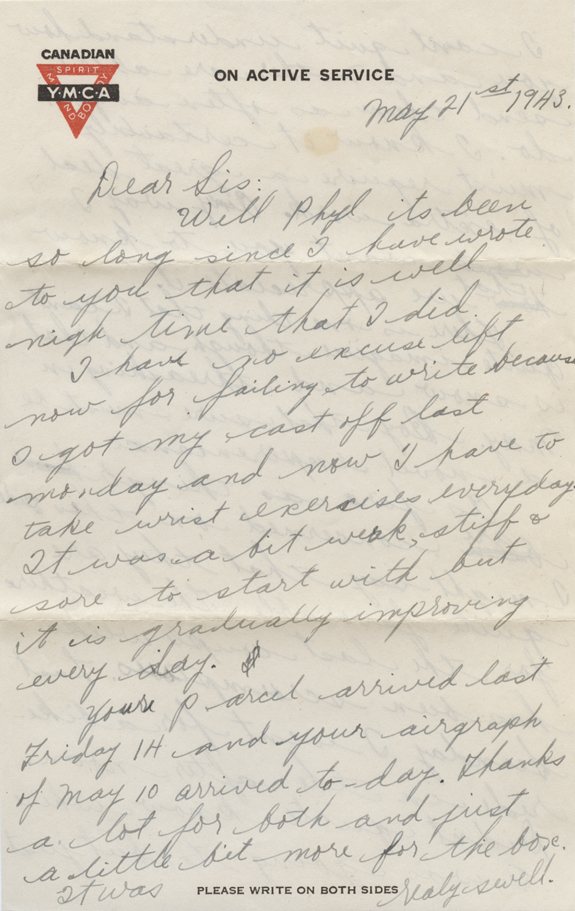 CANADIAN
SPIRIT
Y·M·C·A
MIND
BODY
ON ACTIVE SERVICE
May 21st 1943.
Dear Sis:
Well Phyl its been
so long since I have wrote
to you that it is well
nigh time that I did.
I have no excuse left
now for failing to write because
I got my cast off last
monday and now I have to
take wrist exercises everyday.
It was a bit weak, stiff &
sore to start with but
it is gradually improving
every day.
Youre Parcel arrived last
Friday 14 and your airgraph
of May 10 arrived to-day. Thanks
a lot for both and just
a little bit more for the box.
It was realy swell.
PLEASE WRITE ON BOTH SIDES